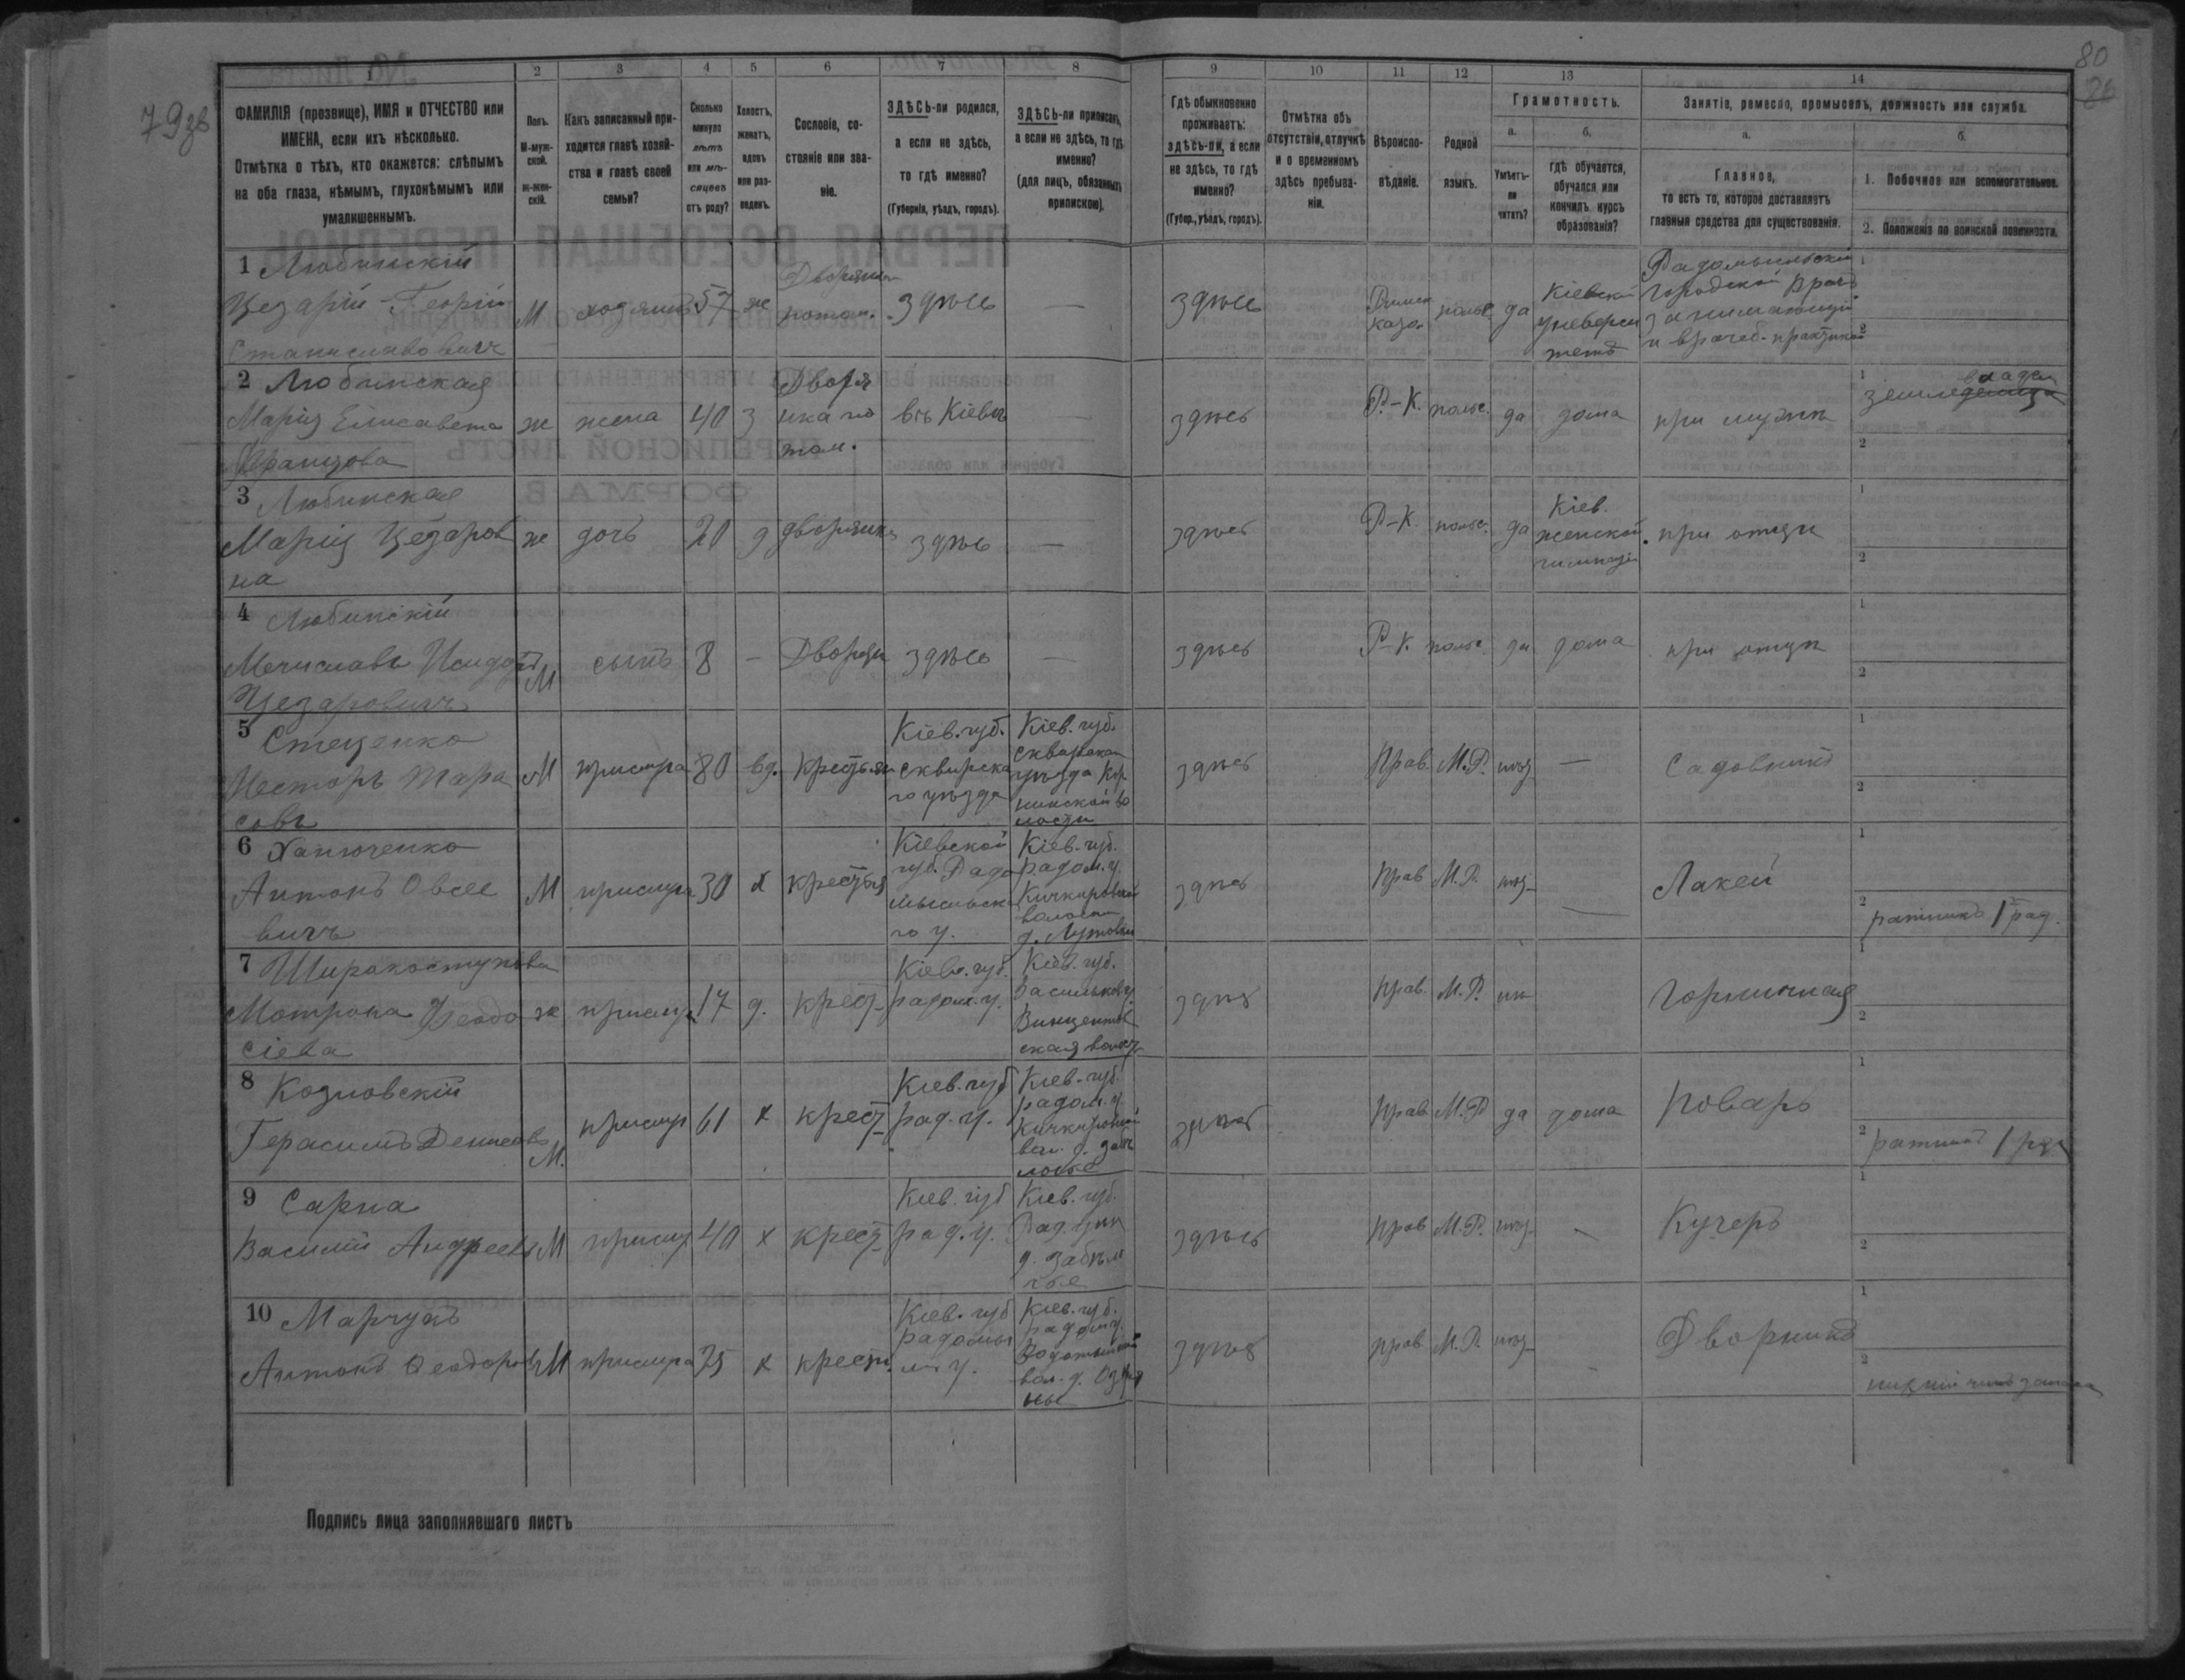 79 зв
80
1 2 3 4 5 6 7 8 9 10 11 12 13 14
ФАМИЛІЯ (прозвище), ИМЯ и ОТЧЕСТВО или
ИМЕНА, если ихъ нѣсколько.
Отмѣтка о тѣхъ, кто окажется: слѣпымъ
на оба глаза, нѣмымъ, глухонѣмымъ или
умалишеннымъ.
Полъ.
М-муж-
ской.
ж-жен-
скій.
Какъ записанный при-
ходится главѣ хозяй-
ства и главѣ своей
семьи?
Сколько
минуло
лѣтъ
или мѣ-
сяцевъ
отъ роду?
Холостъ,
женатъ,
вдовъ
или раз-
веденъ.
Сословіе, со-
стояніе или зва-
ніе.
ЗДѢСЬ-ли родился,
а если не здѣсь,
то гдѣ именно?
(Губернія, уѣздъ, городъ).
ЗДѢСЬ-ли приписанъ,
а если не здѣсь, то гдѣ
именно?
(для лицъ, обязанныхъ
припискою).
Гдѣ обыкновенно
проживаетъ:
здѣсь-ли, а если
не здѣсь, то гдѣ
именно?
(Губер., уѣздъ, городъ).
Отмѣтка объ
отсутствіи, отлучкѣ
и о временномъ
здѣсь пребыва-
ніи.
Вѣроиспо-
вѣданіе.
Родной
языкъ.
Грамотность.
а.
Умѣетъ-
ли
читать?
б.
гдѣ обучается,
обучался или
кончилъ курсъ
образованія?
Занятіе, ремесло, промыселъ, должность или служба.
а.
Главное,
то есть то, которое доставляетъ
главныя средства для существованія.
б.
1. Побочное или вспомогательное.
2. Положеніе по воинской повинности.
1 Любинскій
Цезарій-Георгій
Станиславовичъ
М хозяинъ 57 ж
Дворянин
потом.
здѣсь — здѣсь
Римск
като.
польс да
Кіевской
Университетъ
Радомысльскій
городской врачъ
занимающій
и врачеб. практикой
2 Любинская
Марія Елисавета
Францова
ж жена 40 з
Дворя
нка по
том.
въ Кіевѣ — здѣсь Р.-К. польс. да дома при мужѣ
землевладел
3 Любинская
Марія Цезаров
на
ж дочь 20 д дворянка здѣсь — здѣсь Р-К. польс. да
Кіев.
женской
гимназіи
при отцѣ
4 Любинскій
Мечиславъ Исидоръ
Цезаровичъ
М сынъ 8 — Дворян здѣсь — здѣсь Р-К. польс. да дома при отцѣ
5 Стеценко
Несторъ Тара
совъ
М прислуга 80 вд. крестьян
Кіев. губ.
сквирска
го уѣзда
Кіев. губ.
сквирскаго
уѣзда Кор
нинской во
лости
здѣсь Прав. М.Р. нѣт — Садовникъ
6 Ханюченко
Антонъ Овсее
вичъ
М прислуга 30 х крестья
Кіевской
губ. Радо
мысльска
го у.
Кіев. губ.
радом. у.
Кичкировской
волости
д. Лутовки
здѣсь Прав М.Р. нѣт — Лакей
ратникъ 1 раз.
7 Широкоступова
Матрона Феодо
сіева
ж прислуг 17 д. крест
Кіев. губ.
радом. у.
Кіев. губ.
Васильков. у.
Винцентов
ская волост
здѣсь Прав. М.Р. нѣ Горничная
8 Козловскій
Герасимъ Денисовъ
М. прислуг 61 х крест
Кіев. губ
рад. у.
Кіев. губ.
радом. у.
Кичкировской
вол. д.
здѣсь Прав М.Р да дома Поваръ
ратникъ 1 раз
9 Сарна
Василій Андреевъ
М прислуг 40 х крест
Кіев. губ
рад. у.
Кіев. губ.
Рад. у.
д. Забѣл
чье
здѣсь Прав М.Р. нѣт — Кучеръ
10 Марчукъ
Антонъ Феодоровъ
М прислуга 25 х крест.
Кіев. губ
радомы
ш. у.
Кіев. губ.
радом у.
Водотыйской
вол. д.
здѣсь прав М.Р. нѣт — Дворникъ
нижній чинъ запаса
Подпись лица заполнявшаго листъ